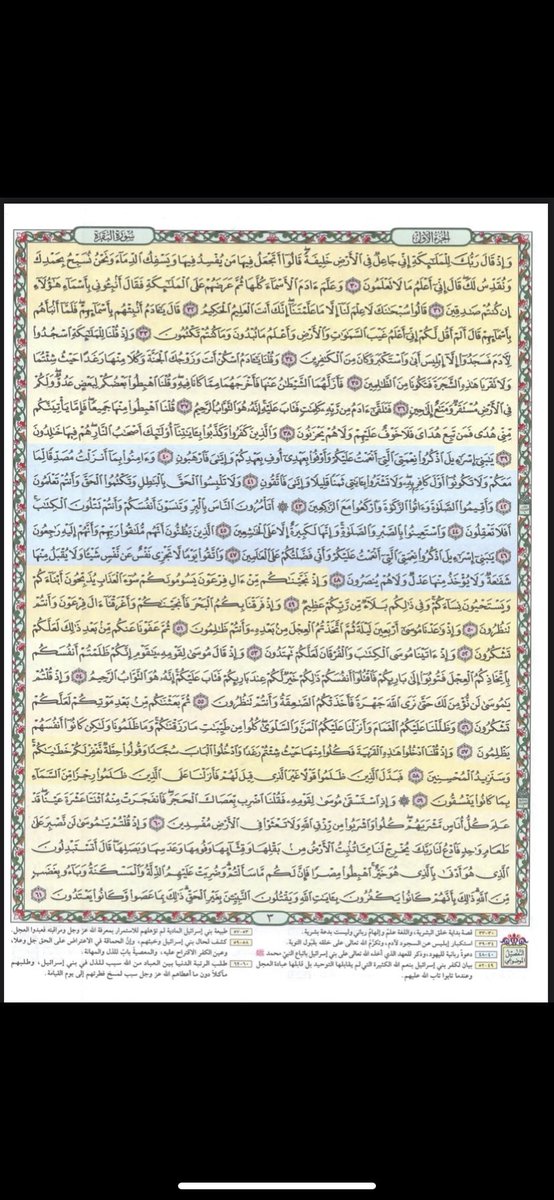 الجزء الأول
سورة البقرة
وَإِذْ قَالَ رَبُّكَ لِلْمَلَٰٓئِكَةِ إِنِّي جَاعِلٌ فِي ٱلْأَرْضِ خَلِيفَةً قَالُوٓا۟ أَتَجْعَلُ فِيهَا مَن يُفْسِدُ فِيهَا وَيَسْفِكُ ٱلدِّمَآءَ وَنَحْنُ نُسَبِّحُ بِحَمْدِكَ
وَنُقَدِّسُ لَكَ قَالَ إِنِّيٓ أَعْلَمُ مَا لَا تَعْلَمُونَ ٣٠ وَعَلَّمَ ءَادَمَ ٱلْأَسْمَآءَ كُلَّهَا ثُمَّ عَرَضَهُمْ عَلَى ٱلْمَلَٰٓئِكَةِ فَقَالَ أَنۢبِـُٔونِي بِأَسْمَآءِ هَٰٓؤُلَآءِ
إِن كُنتُمْ صَٰدِقِينَ ٣١ قَالُوا۟ سُبْحَٰنَكَ لَا عِلْمَ لَنَآ إِلَّا مَا عَلَّمْتَنَآ إِنَّكَ أَنتَ ٱلْعَلِيمُ ٱلْحَكِيمُ ٣٢ قَالَ يَٰٓـَٔادَمُ أَنۢبِئْهُم بِأَسْمَآئِهِمْ فَلَمَّآ أَنۢبَأَهُم
بِأَسْمَآئِهِمْ قَالَ أَلَمْ أَقُل لَّكُمْ إِنِّيٓ أَعْلَمُ غَيْبَ ٱلسَّمَٰوَٰتِ وَٱلْأَرْضِ وَأَعْلَمُ مَا تُبْدُونَ وَمَا كُنتُمْ تَكْتُمُونَ ٣٣ وَإِذْ قُلْنَا لِلْمَلَٰٓئِكَةِ ٱسْجُدُوا۟
لِـَٔادَمَ فَسَجَدُوٓا۟ إِلَّآ إِبْلِيسَ أَبَىٰ وَٱسْتَكْبَرَ وَكَانَ مِنَ ٱلْكَٰفِرِينَ ٣٤ وَقُلْنَا يَٰٓـَٔادَمُ ٱسْكُنْ أَنتَ وَزَوْجُكَ ٱلْجَنَّةَ وَكُلَا مِنْهَا رَغَدًا حَيْثُ شِئْتُمَا
وَلَا تَقْرَبَا هَٰذِهِ ٱلشَّجَرَةَ فَتَكُونَا مِنَ ٱلظَّٰلِمِينَ ٣٥ فَأَزَلَّهُمَا ٱلشَّيْطَٰنُ عَنْهَا فَأَخْرَجَهُمَا مِمَّا كَانَا فِيهِ وَقُلْنَا ٱهْبِطُوا۟ بَعْضُكُمْ لِبَعْضٍ عَدُوٌّ وَلَكُمْ
فِي ٱلْأَرْضِ مُسْتَقَرٌّ وَمَتَٰعٌ إِلَىٰ حِينٍ ٣٦ فَتَلَقَّىٰٓ ءَادَمُ مِن رَّبِّهِۦ كَلِمَٰتٍ فَتَابَ عَلَيْهِ إِنَّهُۥ هُوَ ٱلتَّوَّابُ ٱلرَّحِيمُ ٣٧ قُلْنَا ٱهْبِطُوا۟ مِنْهَا جَمِيعًا فَإِمَّا يَأْتِيَنَّكُم
مِّنِّي هُدًى فَمَن تَبِعَ هُدَايَ فَلَا خَوْفٌ عَلَيْهِمْ وَلَا هُمْ يَحْزَنُونَ ٣٨ وَٱلَّذِينَ كَفَرُوا۟ وَكَذَّبُوا۟ بِـَٔايَٰتِنَآ أُو۟لَٰٓئِكَ أَصْحَٰبُ ٱلنَّارِ هُمْ فِيهَا خَٰلِدُونَ
٣٩ يَٰبَنِيٓ إِسْرَٰٓءِيلَ ٱذْكُرُوا۟ نِعْمَتِيَ ٱلَّتِيٓ أَنْعَمْتُ عَلَيْكُمْ وَأَوْفُوا۟ بِعَهْدِيٓ أُوفِ بِعَهْدِكُمْ وَإِيَّٰيَ فَٱرْهَبُونِ ٤٠ وَءَامِنُوا۟ بِمَآ أَنزَلْتُ مُصَدِّقًا لِّمَا
مَعَكُمْ وَلَا تَكُونُوٓا۟ أَوَّلَ كَافِرٍۭ بِهِۦ وَلَا تَشْتَرُوا۟ بِـَٔايَٰتِي ثَمَنًا قَلِيلًا وَإِيَّٰيَ فَٱتَّقُونِ ٤١ وَلَا تَلْبِسُوا۟ ٱلْحَقَّ بِٱلْبَٰطِلِ وَتَكْتُمُوا۟ ٱلْحَقَّ وَأَنتُمْ تَعْلَمُونَ
٤٢ وَأَقِيمُوا۟ ٱلصَّلَوٰةَ وَءَاتُوا۟ ٱلزَّكَوٰةَ وَٱرْكَعُوا۟ مَعَ ٱلرَّٰكِعِينَ ٤٣ ۞ أَتَأْمُرُونَ ٱلنَّاسَ بِٱلْبِرِّ وَتَنسَوْنَ أَنفُسَكُمْ وَأَنتُمْ تَتْلُونَ ٱلْكِتَٰبَ
أَفَلَا تَعْقِلُونَ ٤٤ وَٱسْتَعِينُوا۟ بِٱلصَّبْرِ وَٱلصَّلَوٰةِ وَإِنَّهَا لَكَبِيرَةٌ إِلَّا عَلَى ٱلْخَٰشِعِينَ ٤٥ ٱلَّذِينَ يَظُنُّونَ أَنَّهُم مُّلَٰقُوا۟ رَبِّهِمْ وَأَنَّهُمْ إِلَيْهِ رَٰجِعُونَ
٤٦ يَٰبَنِيٓ إِسْرَٰٓءِيلَ ٱذْكُرُوا۟ نِعْمَتِيَ ٱلَّتِيٓ أَنْعَمْتُ عَلَيْكُمْ وَأَنِّي فَضَّلْتُكُمْ عَلَى ٱلْعَٰلَمِينَ ٤٧ وَٱتَّقُوا۟ يَوْمًا لَّا تَجْزِي نَفْسٌ عَن نَّفْسٍ شَيْـًٔا وَلَا يُقْبَلُ مِنْهَا
شَفَٰعَةٌ وَلَا يُؤْخَذُ مِنْهَا عَدْلٌ وَلَا هُمْ يُنصَرُونَ ٤٨ وَإِذْ نَجَّيْنَٰكُم مِّنْ ءَالِ فِرْعَوْنَ يَسُومُونَكُمْ سُوٓءَ ٱلْعَذَابِ يُذَبِّحُونَ أَبْنَآءَكُمْ
وَيَسْتَحْيُونَ نِسَآءَكُمْ وَفِي ذَٰلِكُم بَلَآءٌ مِّن رَّبِّكُمْ عَظِيمٌ ٤٩ وَإِذْ فَرَقْنَا بِكُمُ ٱلْبَحْرَ فَأَنجَيْنَٰكُمْ وَأَغْرَقْنَآ ءَالَ فِرْعَوْنَ وَأَنتُمْ
تَنظُرُونَ ٥٠ وَإِذْ وَٰعَدْنَا مُوسَىٰٓ أَرْبَعِينَ لَيْلَةً ثُمَّ ٱتَّخَذْتُمُ ٱلْعِجْلَ مِنۢ بَعْدِهِۦ وَأَنتُمْ ظَٰلِمُونَ ٥١ ثُمَّ عَفَوْنَا عَنكُم مِّنۢ بَعْدِ ذَٰلِكَ لَعَلَّكُمْ
تَشْكُرُونَ ٥٢ وَإِذْ ءَاتَيْنَا مُوسَى ٱلْكِتَٰبَ وَٱلْفُرْقَانَ لَعَلَّكُمْ تَهْتَدُونَ ٥٣ وَإِذْ قَالَ مُوسَىٰ لِقَوْمِهِۦ يَٰقَوْمِ إِنَّكُمْ ظَلَمْتُمْ أَنفُسَكُم
بِٱتِّخَاذِكُمُ ٱلْعِجْلَ فَتُوبُوٓا۟ إِلَىٰ بَارِئِكُمْ فَٱقْتُلُوٓا۟ أَنفُسَكُمْ ذَٰلِكُمْ خَيْرٌ لَّكُمْ عِندَ بَارِئِكُمْ فَتَابَ عَلَيْكُمْ إِنَّهُۥ هُوَ ٱلتَّوَّابُ ٱلرَّحِيمُ ٥٤ وَإِذْ قُلْتُمْ
يَٰمُوسَىٰ لَن نُّؤْمِنَ لَكَ حَتَّىٰ نَرَى ٱللَّهَ جَهْرَةً فَأَخَذَتْكُمُ ٱلصَّٰعِقَةُ وَأَنتُمْ تَنظُرُونَ ٥٥ ثُمَّ بَعَثْنَٰكُم مِّنۢ بَعْدِ مَوْتِكُمْ لَعَلَّكُمْ
تَشْكُرُونَ ٥٦ وَظَلَّلْنَا عَلَيْكُمُ ٱلْغَمَامَ وَأَنزَلْنَا عَلَيْكُمُ ٱلْمَنَّ وَٱلسَّلْوَىٰ كُلُوا۟ مِن طَيِّبَٰتِ مَا رَزَقْنَٰكُمْ وَمَا ظَلَمُونَا وَلَٰكِن كَانُوٓا۟ أَنفُسَهُمْ
يَظْلِمُونَ ٥٧ وَإِذْ قُلْنَا ٱدْخُلُوا۟ هَٰذِهِ ٱلْقَرْيَةَ فَكُلُوا۟ مِنْهَا حَيْثُ شِئْتُمْ رَغَدًا وَٱدْخُلُوا۟ ٱلْبَابَ سُجَّدًا وَقُولُوا۟ حِطَّةٌ نَّغْفِرْ لَكُمْ خَطَٰيَٰكُمْ
وَسَنَزِيدُ ٱلْمُحْسِنِينَ ٥٨ فَبَدَّلَ ٱلَّذِينَ ظَلَمُوا۟ قَوْلًا غَيْرَ ٱلَّذِي قِيلَ لَهُمْ فَأَنزَلْنَا عَلَى ٱلَّذِينَ ظَلَمُوا۟ رِجْزًا مِّنَ ٱلسَّمَآءِ
بِمَا كَانُوا۟ يَفْسُقُونَ ٥٩ ۞ وَإِذِ ٱسْتَسْقَىٰ مُوسَىٰ لِقَوْمِهِۦ فَقُلْنَا ٱضْرِب بِّعَصَاكَ ٱلْحَجَرَ فَٱنفَجَرَتْ مِنْهُ ٱثْنَتَا عَشْرَةَ عَيْنًا قَدْ
عَلِمَ كُلُّ أُنَاسٍ مَّشْرَبَهُمْ كُلُوا۟ وَٱشْرَبُوا۟ مِن رِّزْقِ ٱللَّهِ وَلَا تَعْثَوْا۟ فِي ٱلْأَرْضِ مُفْسِدِينَ ٦٠ وَإِذْ قُلْتُمْ يَٰمُوسَىٰ لَن نَّصْبِرَ عَلَىٰ
طَعَامٍ وَٰحِدٍ فَٱدْعُ لَنَا رَبَّكَ يُخْرِجْ لَنَا مِمَّا تُنۢبِتُ ٱلْأَرْضُ مِنۢ بَقْلِهَا وَقِثَّآئِهَا وَفُومِهَا وَعَدَسِهَا وَبَصَلِهَا قَالَ أَتَسْتَبْدِلُونَ
ٱلَّذِي هُوَ أَدْنَىٰ بِٱلَّذِي هُوَ خَيْرٌ ٱهْبِطُوا۟ مِصْرًا فَإِنَّ لَكُم مَّا سَأَلْتُمْ وَضُرِبَتْ عَلَيْهِمُ ٱلذِّلَّةُ وَٱلْمَسْكَنَةُ وَبَآءُو بِغَضَبٍ
مِّنَ ٱللَّهِ ذَٰلِكَ بِأَنَّهُمْ كَانُوا۟ يَكْفُرُونَ بِـَٔايَٰتِ ٱللَّهِ وَيَقْتُلُونَ ٱلنَّبِيِّـۧنَ بِغَيْرِ ٱلْحَقِّ ذَٰلِكَ بِمَا عَصَوا۟ وَّكَانُوا۟ يَعْتَدُونَ ٦١
٣
التفصيل الموضوعي
٣٠-٣٣ قصة بداية خلق البشرية، واللغة علم وإلهام رباني وليست بدعة بشرية.
٣٤-٣٩ استكبار إبليس عن السجود لآدم، وتكرّم الله تعالى على خلقه بقبول التوبة.
٤٠-٤٨ دعوة ربانية لليهود وذكر للعهد الذي أخذه الله تعالى على بني إسرائيل باتباع النبيّ محمد ﷺ
٤٩-٥٢ بيان لكفر بني إسرائيل بنعم الله الكثيرة التي لم يقابلها التوحيد بل قابلها عبادة العجل
وعندما تابوا تاب الله عليهم.
٥٣-٥٧ طبيعة بني إسرائيل المادية لم تؤهلهم للاستمرار بمعرفة الله عز وجل ومراقبته فعبدوا العجل.
٥٨-٥٩ كشف لحال بني إسرائيل وخبثهم، وإنّ الحماقة في الاعتراض على الحق جل وعلا،
وعين الكفر الاقتراح عليه، والمعصية باب للذل والمهانة.
٦٠-٦١ طلب الرتبة الدنيا بين العباد من الله سبب للذل في بني إسرائيل، وطلبهم
مأكلاً دون ما أعطاهم الله عز وجل سبب لمسخ فطرتهم إلى يوم القيامة.